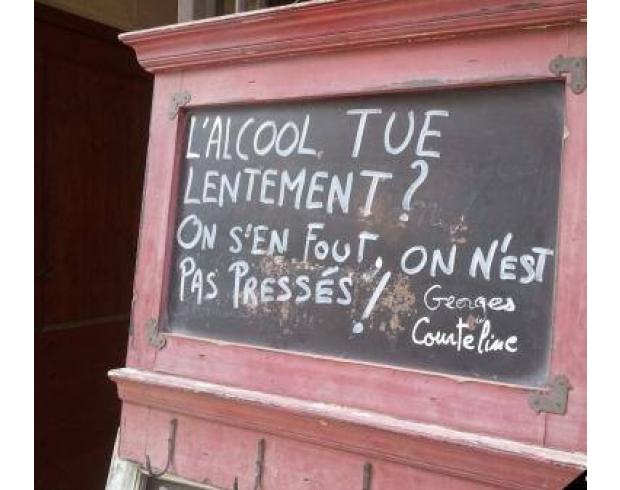 L'ALCOOL TUE
LENTEMENT?
ON S'EN FOUT, ON N'EST
PAS PRESSÉS!
Georges
Courteline